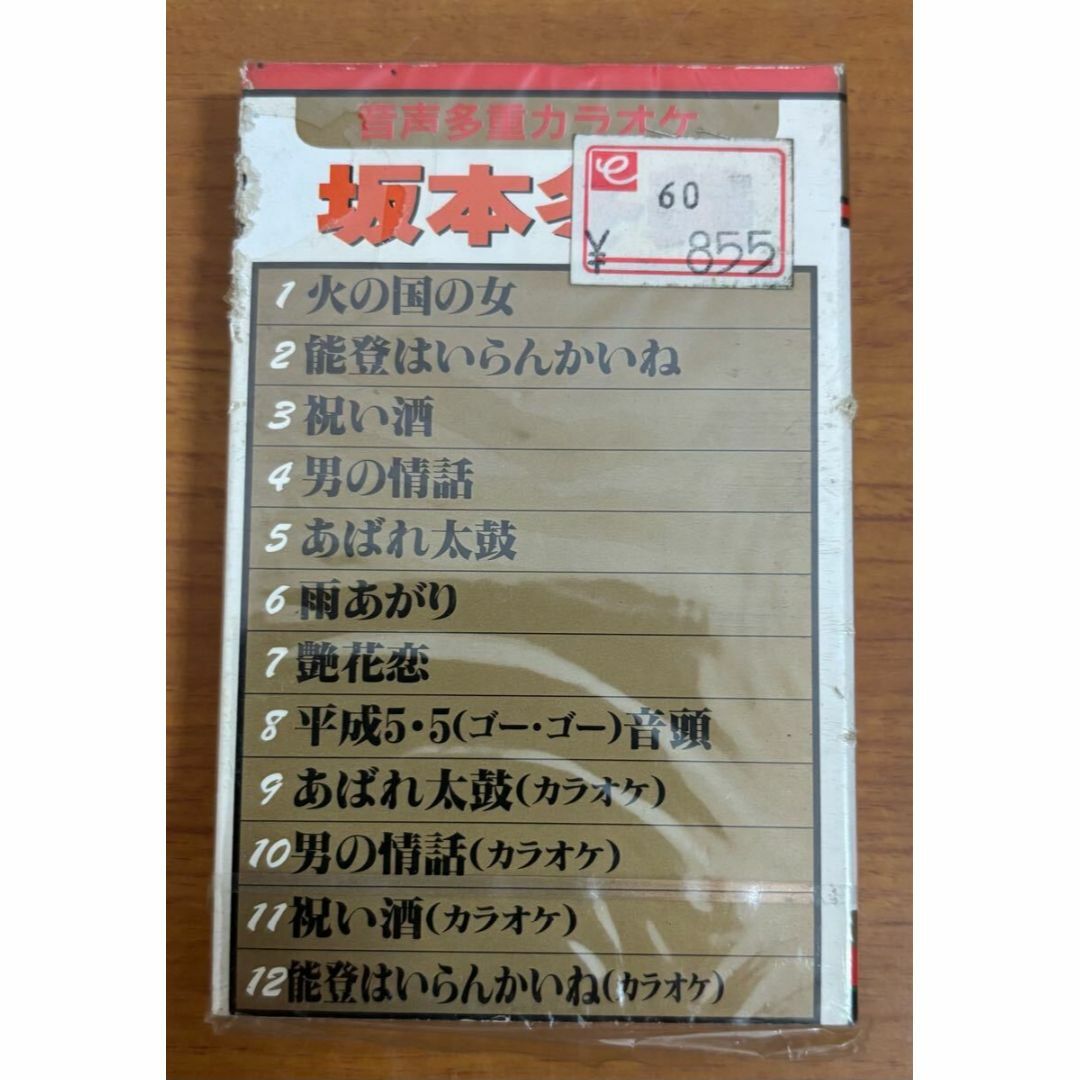 音声多重カラオケ
坂本
e
60
¥ 855
1 火の国の女
2 能登はいらんかいね
3 祝い酒
4 男の情話
5 あばれ太鼓
6 雨あがり
7 艶花恋
8 平成5・5(ゴー・ゴー)音頭
9 あばれ太鼓(カラオケ)
10 男の情話(カラオケ)
11 祝い酒(カラオケ)
12 能登はいらんかいね(カラオケ)